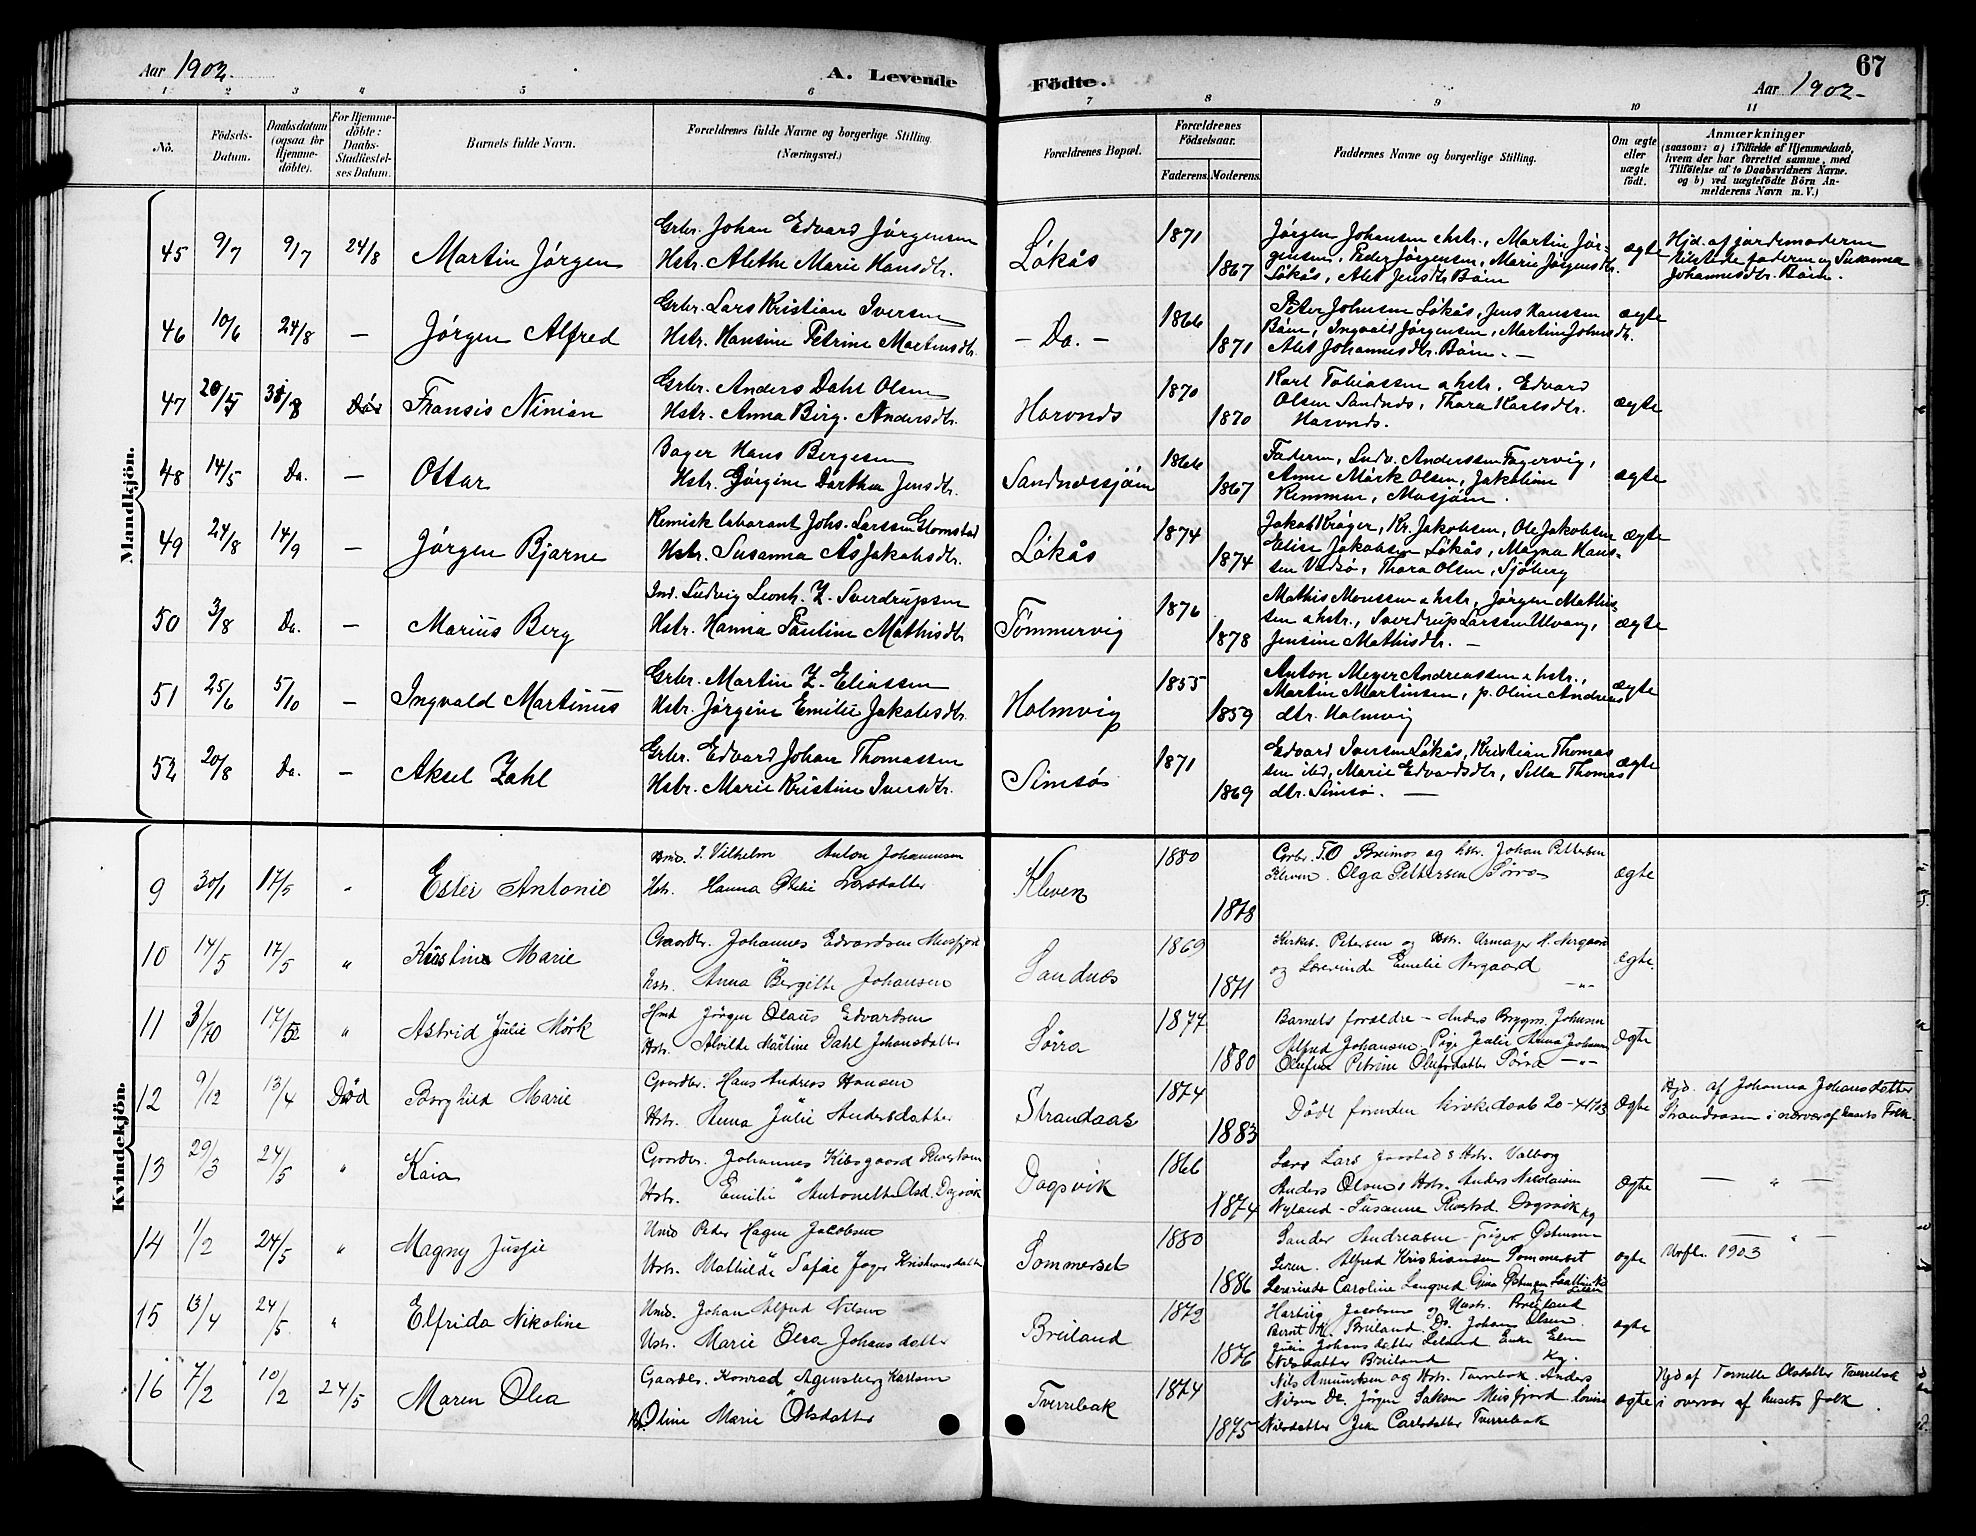 67
Aar 1902.
A. Levende
Födte.
Aar 1902-
1 2 3 4 5 6 7 8 9 10 11
No.
Födsels-Datum.
Daabsdatum (ogsaa for Hjemmedöbte).
For Hjemmedöbte: Daabs-Stadfæstelses Datum.
Barnets fulde Navn.
Forældrenes fulde Navne og borgerlige Stilling.
(Næringsvei.)
Forældrenes Bopæl.
Forældrenes Födselsaar.
Faderens. Moderens.
Faddernes Navne og borgerlige Stilling.
Om ægte eller uægte födt.
Anmærkninger
(saasom: a) i Tilfælde af Hjemmedaab,
hvem der har forrettet samme, med
Tilföielse af to Daabsvidners Navne.
og b) ved uægtefödte Börn Anmelderens Navn m. V.)
Mandkjön.
45 9/7 9/7 24/8 Martin Jørgen
Grbr. Johan Edvard Jørgensen
Hstr. Alethe Marie Hansdtr.
Løkås 1871 1867
Jørgen Johansen & hstr., Martin Jørgensen, Peder Jørgensen, Marie Jørgensdtr.
Løkås, Alet Jensdtr. Båen
ægte
Hjd. af jordemoderen
tilstede faderen og Susanna
Johannesdtr. Båen.
46 10/6 24/8 — Jørgen Alfred
Grbr. Lars Kristian Iversen
Hstr. Hansine Petrine Martinsdtr.
- Do. - 1866 1871
Peter Johnsen Løkås, Jens Hanssen
Båen, Ingvald Jørgensen, Martin Johnsdtr.
Alet Johannesdtr. Båen. —
ægte
47 Fransis Ninian
Grbr. Anders Dahl Olsen
Hstr. Anna Berg. Andersdtr.
Horvnds 1870 1870
Karl Tobiassen & hstr. Edvard
Olsen Sandnds, Thora Karlsdtr.
Horvnds.
ægte
48 14/5 Do. — Ottar
Bager Hans Bergesen
Hstr. Jørgine Dorthea Jensdtr.
Sandnessjøen 1866 1867
Faderen, Ludv. Anderssen Fagervig,
Anne Mørk Olsen, Jakobine
Remmen, Mosjøen.
ægte
49 24/8 14/9 — Jørgen Bjarne
Kemisk laborant Johs. Larssen Glomstad
Hstr. Susanna Ås Jakobsdtr.
Løkås 1874 1874
Jakob Krøger, Kr. Jakobsen, Ole Jakobsen
Elise Jakobsen Løkås, Magna Hanssen Vadsø, Thora Olsen, Sjøberg
ægte
50 3/8 Do. — Marius Berg
Ind. Ludvig Leonh. Z. Sverdrupsen
Hstr. Hanna Pauline Mathisdtr.
Tømmervig 1876 1878
Mathis Monssen & hstr., Jørgen Mathissen & hstr., Sverdrup Larssen Ulvang,
Jensine Mathisdtr. —
ægte
51 25/6 5/10 — Ingvald Martinus
Grbr. Martin Z. Eliassen
Hstr. Jørgine Emilie Jakobsdtr.
Holmvig 1855 1859
Anton Meyer Andreassen & hstr.,
Martin Martinsen, p. Oline Andreasdtr. Holmvig
ægte
52 20/8 Do. — Aksel Zahl
Grbr. Edvard Johan Thomassen
Hstr. Marie Kristine Iversdtr.
Simsø 1871 1869
Edvard Iversen Løkås, Kristian Thomassen ibd, Marie Edvardsdtr, Silla Thomasdtr. Simsø. —
ægte
Kvindekjön.
9 30/1 17/5 " Ester Antonie
J. Vilhelm Anton Johannesen
Hst. Hanna Larsdatter
Kleven 1880 1878
og hstr. Johan Pettersen
Kleven. Olga Pettersen
ægte
10 14/5 17/5 " Kristine Marie
Gaardbr. Johannes Edvardsen Meisfjord
Hstr. Anna Bergitte Johansen
Sandnes 1869 1871
Kirkes. Petersen og Hstr.
og Lærerinde Emelie Nergaard —"—
ægte.
11 17/5 " Astrid Julie Mörk
Jörgen Olaus Edvardsen
Hstr. Alvilde Martine Dahl Johansdatter
Sörra 1877 1880
Barnets forældre — Anders Johansen
Alfred Johansen. Pige Julie Anna Johansen
Petrine Olufsdatter —"—
ægte
12 9/12 13/4 Död Borghild Marie
Gaardbr. Hans Andreas Hansen
Hstr. Anna Julie Andersdatter
Strandaas 1874 1883
Döde forinden kirkedaab 20-4 1903
ægte
Hjd. af Johanna Johansdatter
Strandaasen i nærvær af husets Folk
13 29/3 24/5 " Kaia
Gaardbr. Johannes Kibsgaard
Hstr. Emilie Antonette Olsd. Dagsvik
Dagsvik 1866 1874
Lars & Hstr. Valborg
Anders Olsen & Hstr. Anders Nicolaisen
Nyland - Susanne Dagsvik
ægte — " —
14 1/2 24/5 " Magny Jusfie
Peder Hagen Jacobsen
Hstr. Mathilde Sofie Kristiansdatter
Sommerset 1880 1886
Sander Andreasen
Alfred Kristiansen Sommerset
Lærerinde Caroline Langved Gina
ægte — " —
1903
15 13/4 24/5 " Elfrida Nikoline
Johan Alfred Nilsen
Hstr. Marie Olea Johansdatter
Breiland 1872 1876
Hartvig Jacobsen og Hustr. Breiland
Bernt K. Breiland Do. Johan Olsen
Johansdatter Leland Enke Elen
Nilsdatter Breiland
ægte
16 7/2 10/2 24/5 Maren Olea
Gaardbr. Konrad Agensberg Karlsen
Oline Marie Olsdatter
Tverrebak 1874 1875
Nils Amundsen og Hstr. Tverrebak. Anders
Nilsen Do. Jörgen Meisfjord
Nilsdatter Carlsdatter Tverrebak
ægte
Hjd af Olsdatter Tverrebak
i overvær af husets folk.